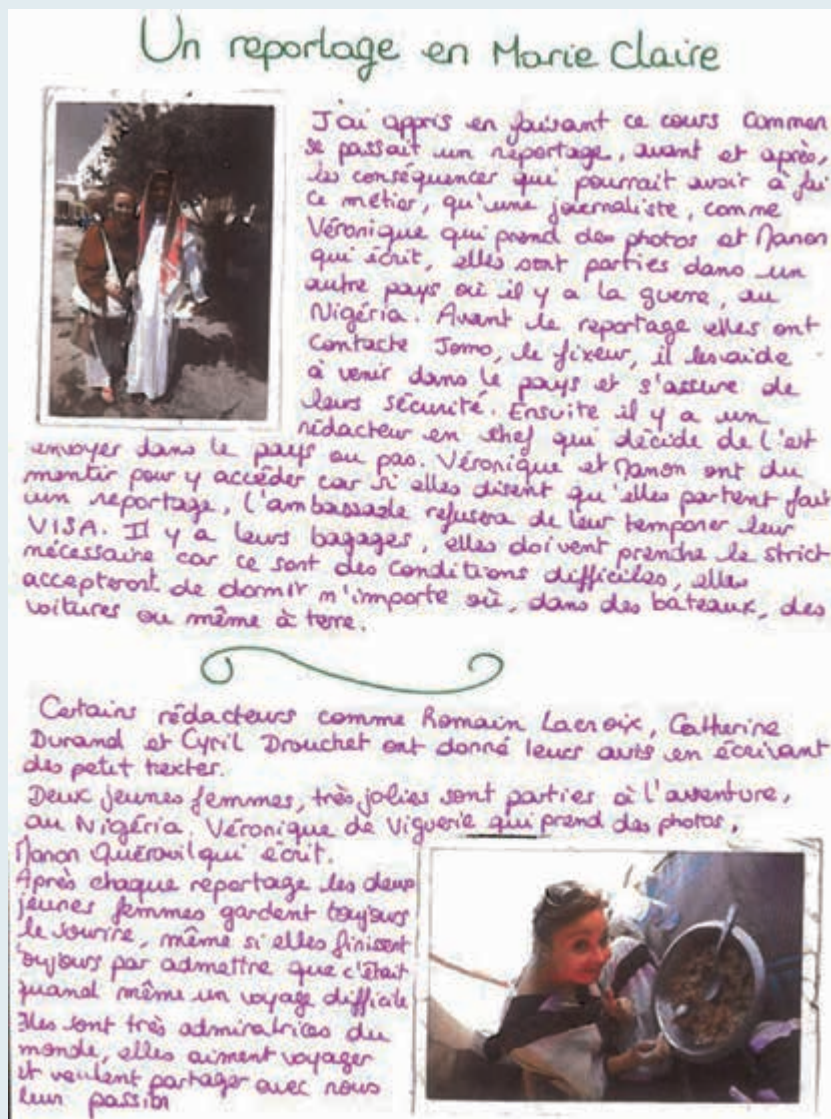 Un reportage en Marie Claire
J'ai appris en faisant ce cours Commen
se passait un reportage, avant et après,
les conséquences qui pourrait avoir à fai
ce métier, qu'une journaliste, comme
Véronique qui prend des photos et Manon
qui écrit, elles sont parties dans un
autre pays où il y a la guerre, au
Nigéria. Avant le reportage elles ont
contacte Jomo, le fixeur, il les aide
à venir dans le pays et s'assure de
leurs sécurité. Ensuite il y a un
rédacteur en chef qui décide de l'est
envoyer dans le pays ou pas. Véronique et Manon ont du
mentir pour y accéder car si elles disent qu'elles partent fait
un reportage, l'ambassade refusera de leur temponer leur
VISA. Il y a leurs bagages, elles doivent prendre le strict
nécessaire car ce sont des conditions difficiles, elles
accepteront de dormir n'importe où, dans des bateaux, des
voitures ou même à terre.
Certains rédacteurs comme Romain Lacroix, Catherine
Durand et Cyril Drouchet ont donné leurs avis en écrivant
des petit textes.
Deux jeunes femmes, très jolies sont parties à l'aventure,
au Nigéria. Véronique de Viguerie qui prend des photos,
Manon Quérouil qui écrit.
Après chaque reportage les deux
jeunes femmes gardent toujours
le sourire, même si elles finissent
toujours par admettre que c'était
quand même un voyage difficile
Elles sont très admiratrices du
monde, elles aiment voyager
et veulent partager avec nous
leur passion